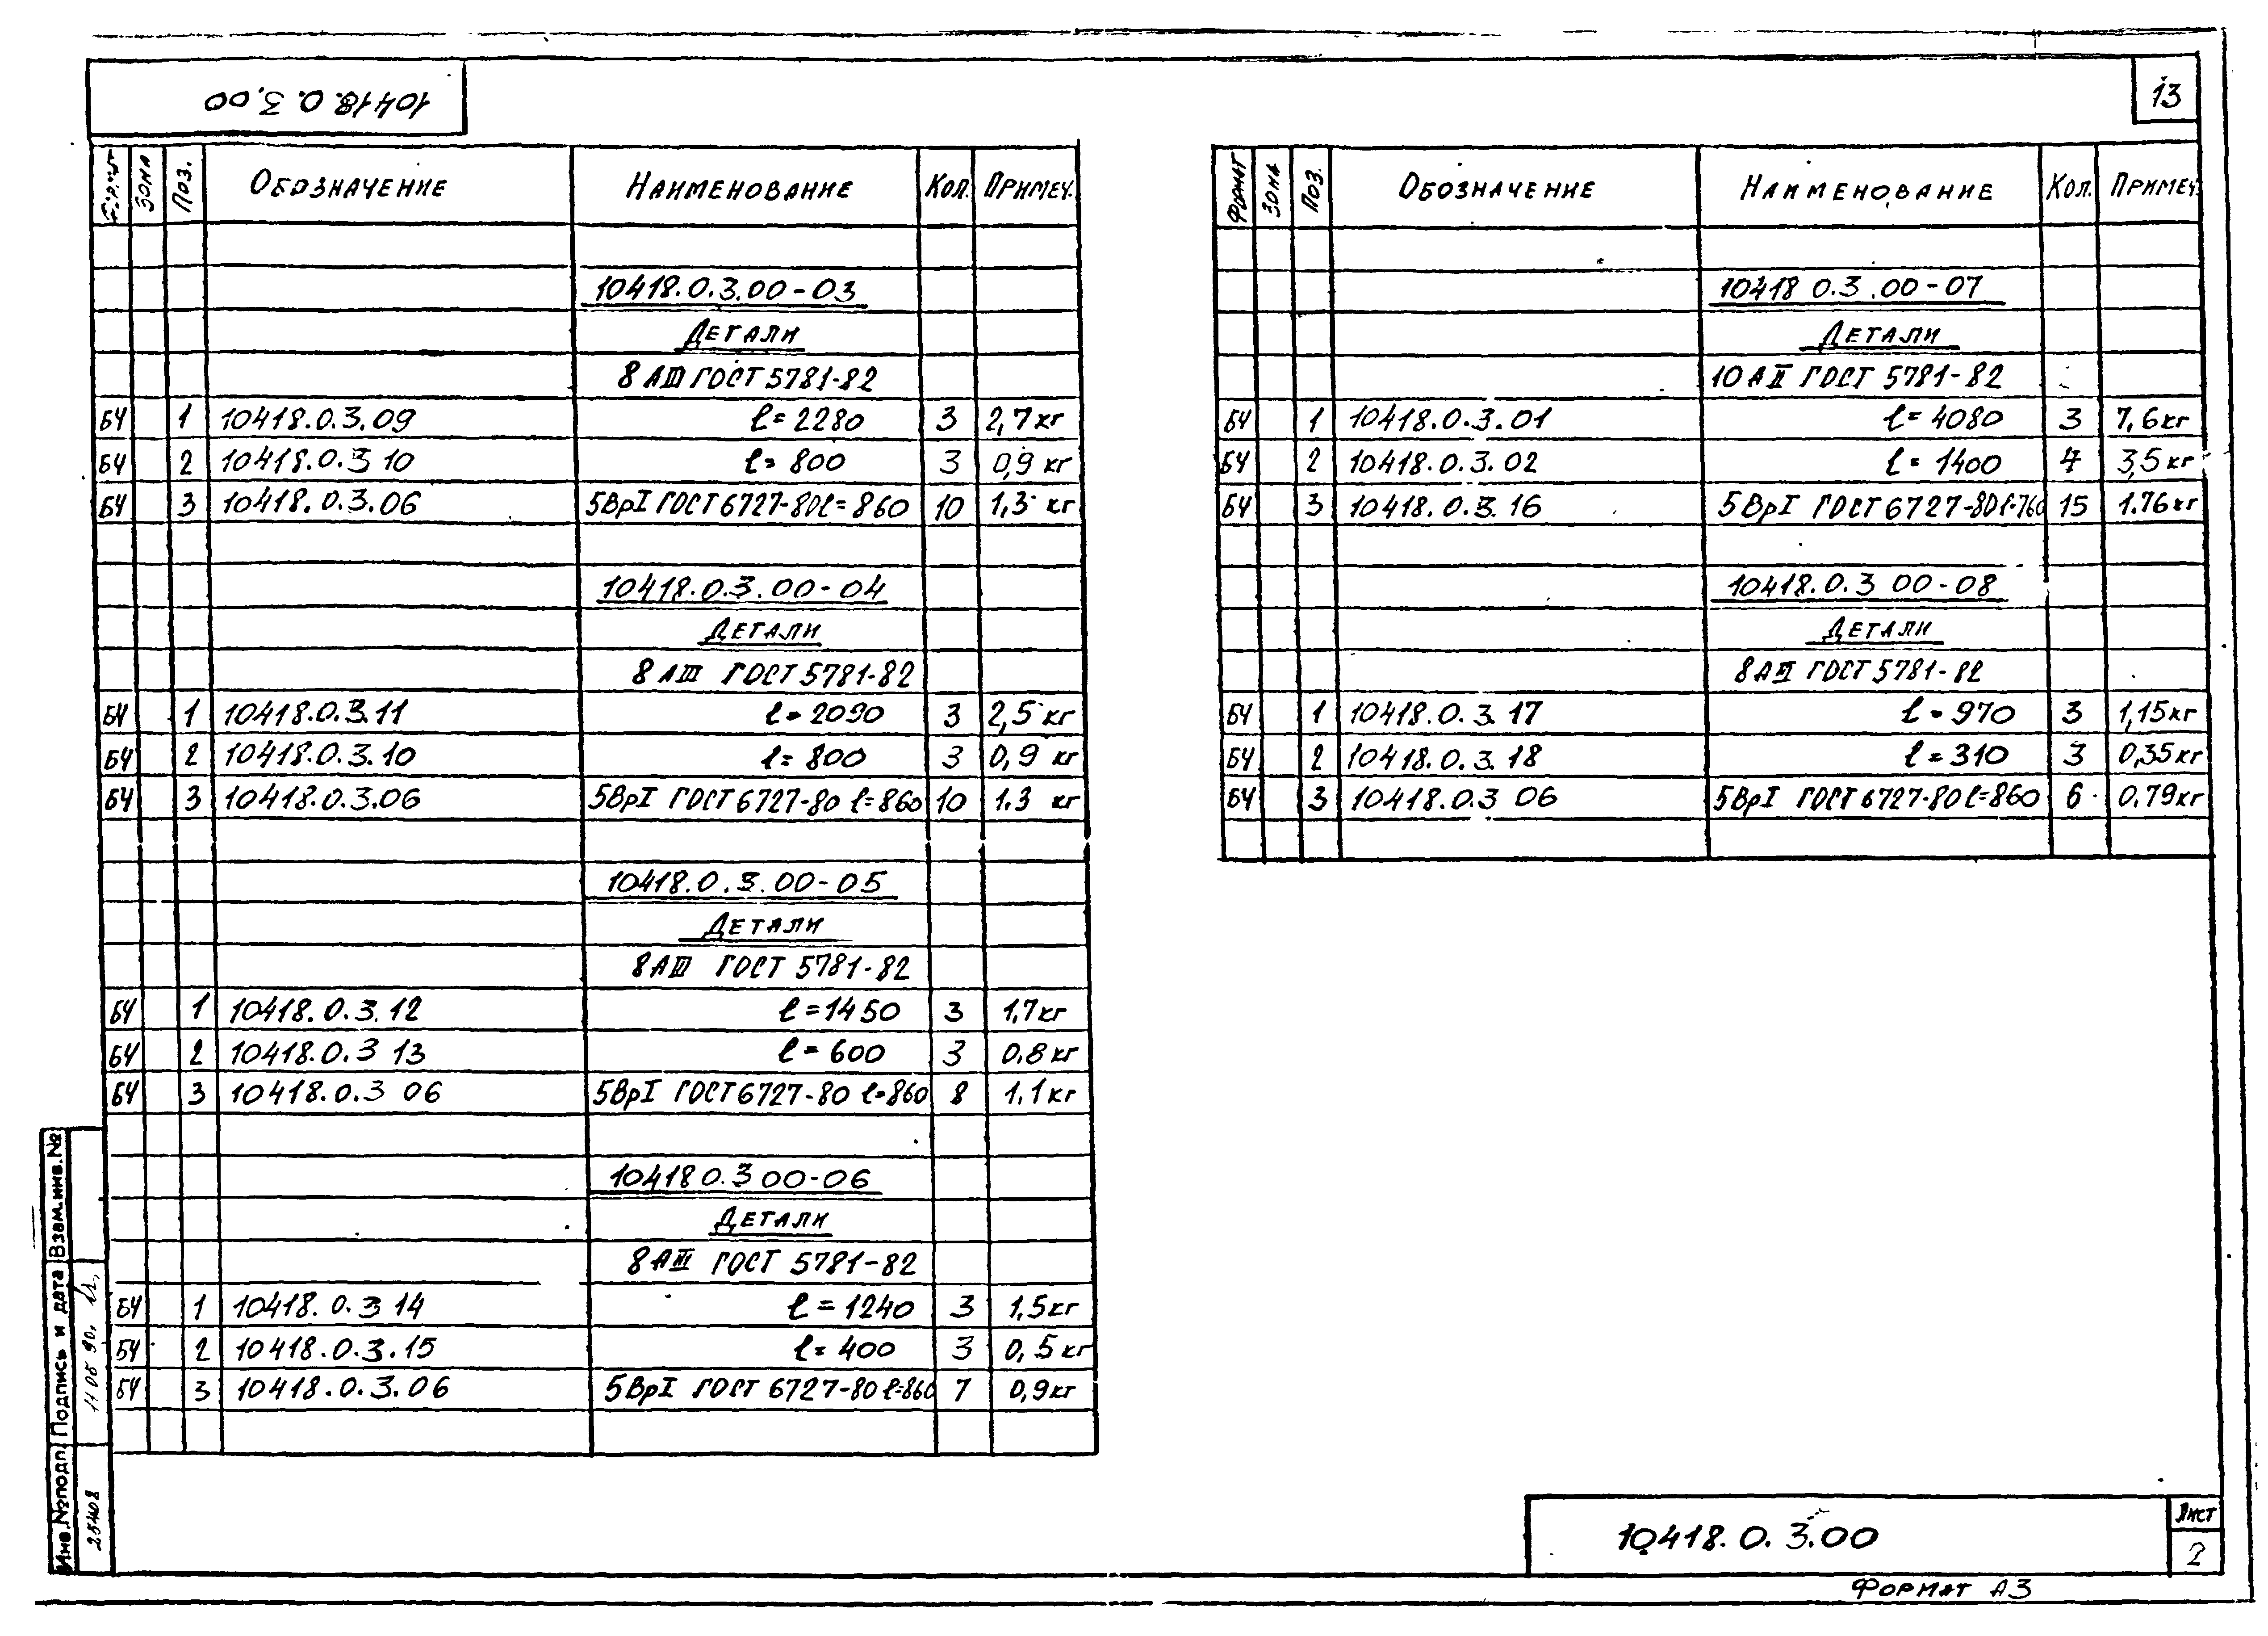 10418.0.3.00
13
Зона Поз. Обозначение Наименование Кол. Примеч.
10418.0.3.00-03
Детали
8 АIII ГОСТ 5781-82
БЧ 1 10418.0.3.09 ℓ=2280 3 2,7 кг
БЧ 2 10418.0.3 10 ℓ=800 3 0,9 кг
БЧ 3 10418.0.3.06 5ВрI ГОСТ 6727-80 ℓ=860 10 1,3 кг
10418.0.3.00-04
Детали
8 АIII ГОСТ 5781-82
БЧ 1 10418.0.3.11 ℓ=2090 3 2,5 кг
БЧ 2 10418.0.3.10 ℓ=800 3 0,9 кг
БЧ 3 10418.0.3.06 5ВрI ГОСТ 6727-80 ℓ=860 10 1.3 кг
10418.0.3.00-05
Детали
8 АIII ГОСТ 5781-82
БЧ 1 10418.0.3.12 ℓ=1450 3 1,7 кг
БЧ 2 10418.0.3 13 ℓ=600 3 0,8 кг
БЧ 3 10418.0.3 06 5ВрI ГОСТ 6727-80 ℓ=860 8 1,1 кг
10418 0.3 00-06
Детали
8 АIII ГОСТ 5781-82
БЧ 1 10418.0.3 14 ℓ=1240 3 1,5 кг
БЧ 2 10418.0.3.15 ℓ=400 3 0,5 кг
БЧ 3 10418.0.3.06 5ВрI ГОСТ 6727-80 ℓ=860 7 0,9 кг
Формат Зона Поз. Обозначение Наименование Кол. Примеч.
10418 0.3.00-07
Детали
10 АII ГОСТ 5781-82
БЧ 1 10418.0.3.01 ℓ=4080 3 7,6 кг
БЧ 2 10418.0.3.02 ℓ=1400 4 3,5 кг
БЧ 3 10418.0.3.16 5ВрI ГОСТ 6727-80 ℓ=760 15 1.76 кг
10418.0.3 00-08
Детали
8 АIII ГОСТ 5781-82
БЧ 1 10418.0.3.17 ℓ=970 3 1,15 кг
БЧ 2 10418.0.3.18 ℓ=310 3 0,35 кг
БЧ 3 10418.0.3 06 5ВрI ГОСТ 6727-80 ℓ=860 6 0.79 кг
Инв.№подл. Подпись и дата Взам.инв.№
25408 11 06 90.
10418.0.3.00
Лист
2
Формат А3